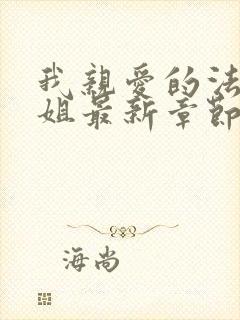 我親愛的法
姐最新章節
海尚